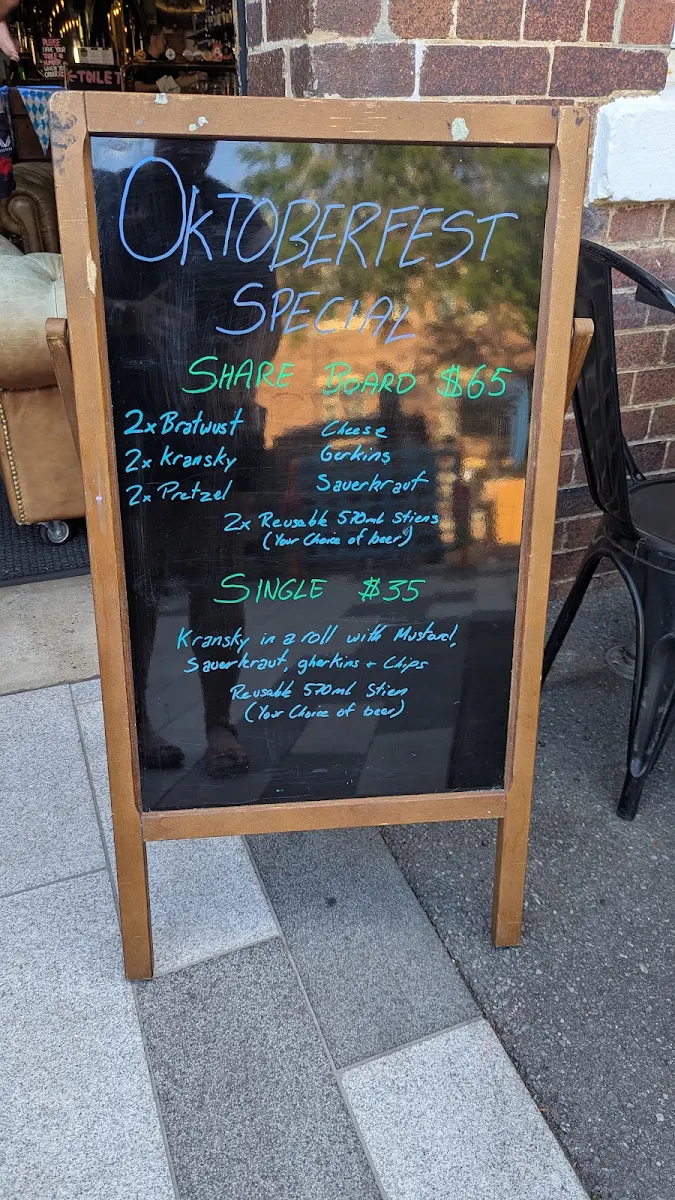 PLEASE
HAVE YOUR
TABLE
NUMBER
WHEN YOU
ORDER
←TOILET
OKTOBERFEST
SPECIAL
SHARE BOARD $65
2x Bratwust
2x Kransky
2x Pretzel
Cheese
Gerkins
Sauerkraut
2x Reusable 570ml Stiens
(Your Choice of beer)
SINGLE $35
Kransky in a roll with Mustard,
Sauerkraut, gherkins + Chips
Reusable 570ml Stien
(Your Choice of beer)